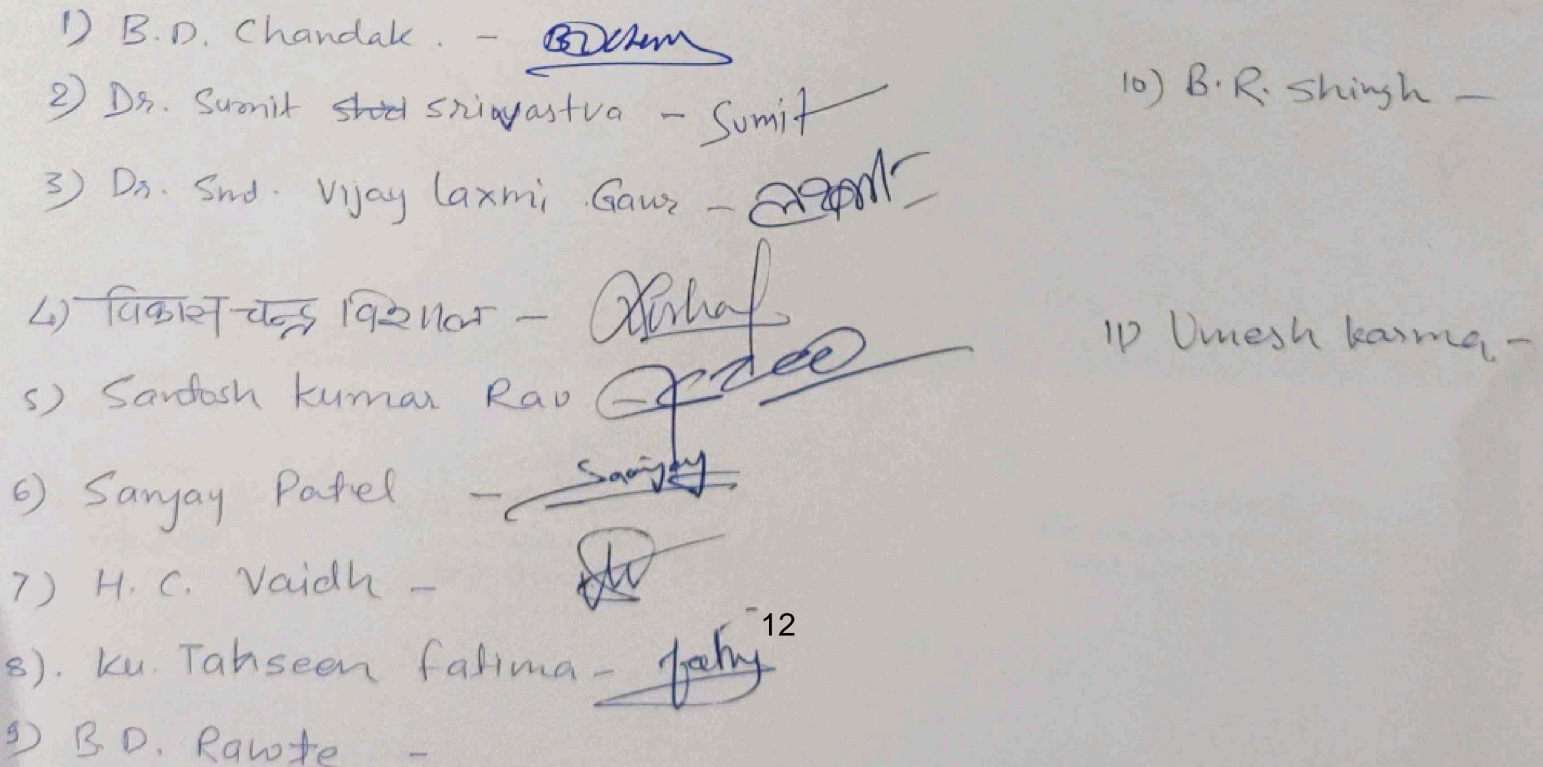 1) B.D. Chandak. -
2) Dr. Sumit srivastva - Sumit
3) Dr. Smt. Vijay laxmi Gaur -
4) विकास चन्द्र विशाल -
5) Santosh kumar Rao
6) Sanjay Patel - Sanjay
7) H. C. Vaidh -
12
8). Ku. Tahseen fatima -
9) B.D. Rawte -
10) B.R. Shingh -
11) Umesh karma -